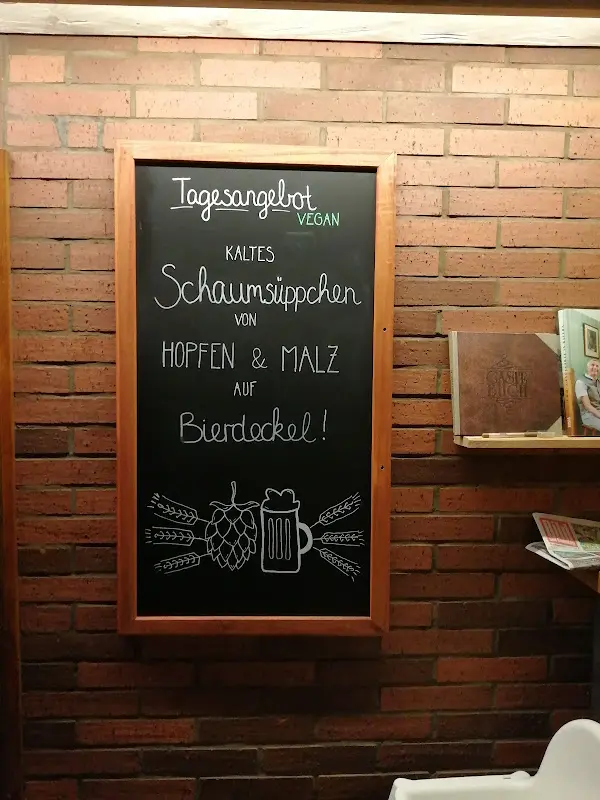 Tagesangebot
VEGAN
KALTES
Schaumsüppchen
VON
HOPFEN & MALZ
AUF
Bierdeckel!
GÄSTE
BUCH